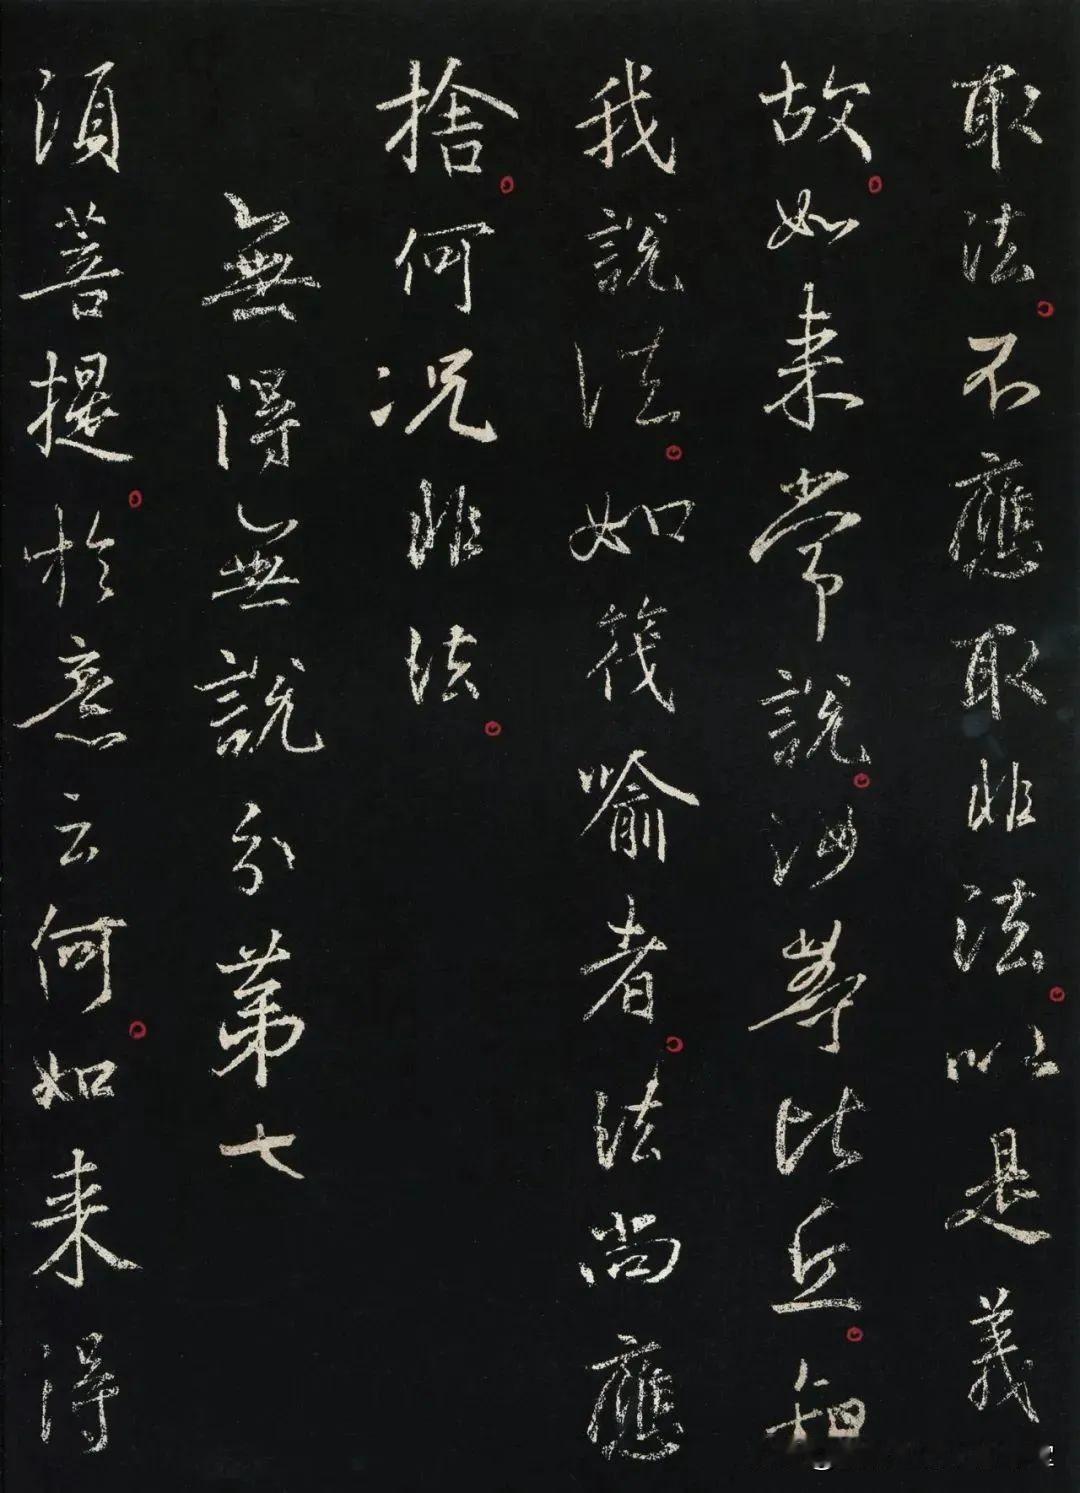 取法。不應取非法。以是義
故。如来常說。汝等比丘。知
我說法。如筏喻者。法尚應
捨。何況非法。
無得無說分第七
須菩提。於意云何。如来得